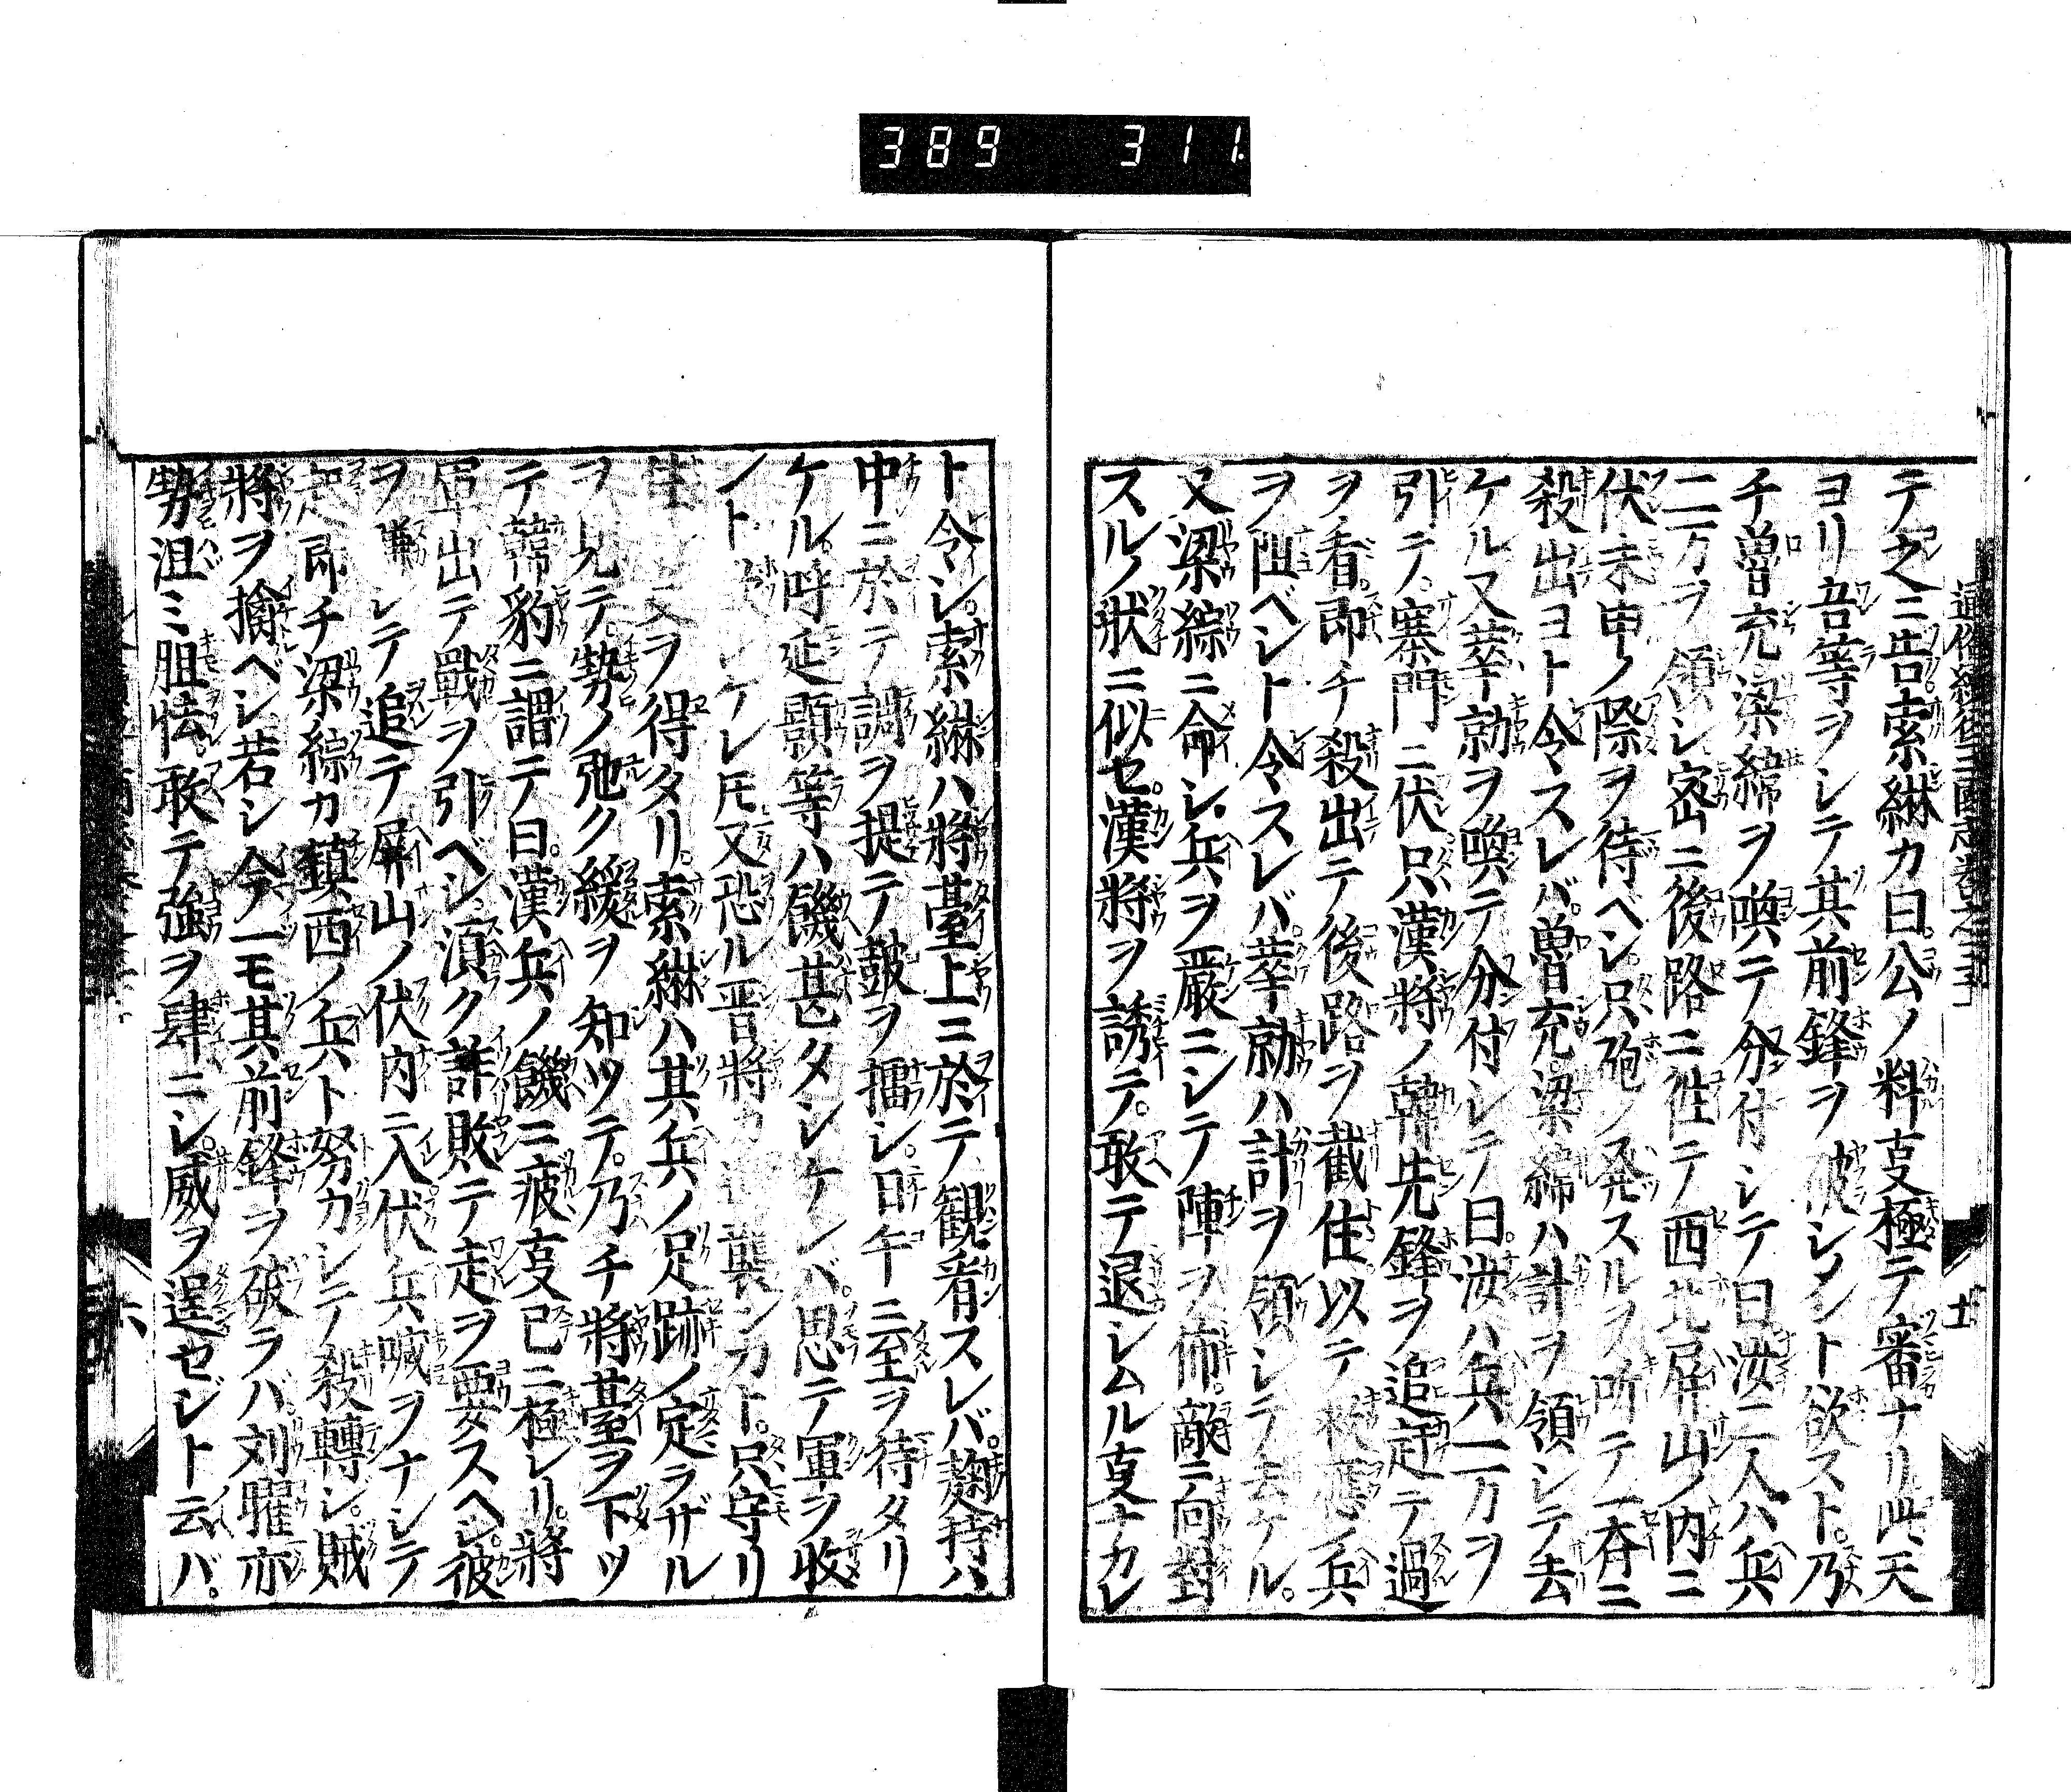 389 311
通俗續後三國志卷之二十
テ之ニ告索綝カ曰。公ノ料㕝極テ審ナリ此天
ヨリ吾等ヲシテ其前鋒ヲ破シメント欲スト。乃
チ曽充梁緯ヲ喚テ分付シテ曰汝二人ハ兵
二万ヲ領シ密ニ後路ニ徃テ西北屏山ノ内ニ
伏未申ノ際ヲ待ベシ。只砲ノ発スルヲ听テ一斉ニ
殺出ヨト令スレバ。曽充。梁緯ハ計ヲ領シテ去
ケル又莘勍ヲ喚テ分付シテ曰。汝ハ兵一万ヲ
引テ。寨門ニ伏只漢將ノ韓先鋒ヲ追赶テ過
ヲ看。即チ殺出テ後路ヲ截住以テ救應ノ兵
ヲ阻ベシト令スレバ。莘勍ハ計ヲ領シテ去ケル。
又梁綜ニ命シ。兵ヲ嚴ニシテ陣ヲ布。敵ニ向對
スルノ狀ニ似セ。漢將ヲ誘テ。敢テ退シムル㕝ナカレ
ト令シ。索綝ハ將臺上ニ於テ観看スレバ。麹持ハ
中ニ於テ調ヲ提テ鼓ヲ擂シ。日午ニ至ヲ待タリ
ケル。呼延顥等ハ饑甚タシケレバ。思テ軍ヲ收
ントシケレ𪜈又恐ル晋將カ襲ンカト。只守リ
ヲ得タリ。索綝ハ其兵ノ足跡ノ定ラザル
ヲ見テ。勢ノ弛ク緩ヲ知ツテ。乃チ將臺ヲ下ツ
テ韓豹ニ謂テ曰。漢兵ノ饑ニ疲㕝已ニ極レリ。將
軍出テ戰ヲ引ベシ。須ク詐敗テ走ヲ要スベシ。彼
ヲ賺シテ追テ屏山ノ伏内ニ入伏兵喊ヲナシテ
起即チ梁綜カ鎮西ノ兵ト努カシテ殺轉シ。賊
將ヲ擒ベシ若シ今一モ其前鋒ヲ破ラバ。刘曜亦
勢沮ミ胆怯。敢テ強ヲ肆ニシ。威ヲ逞セジト云バ。